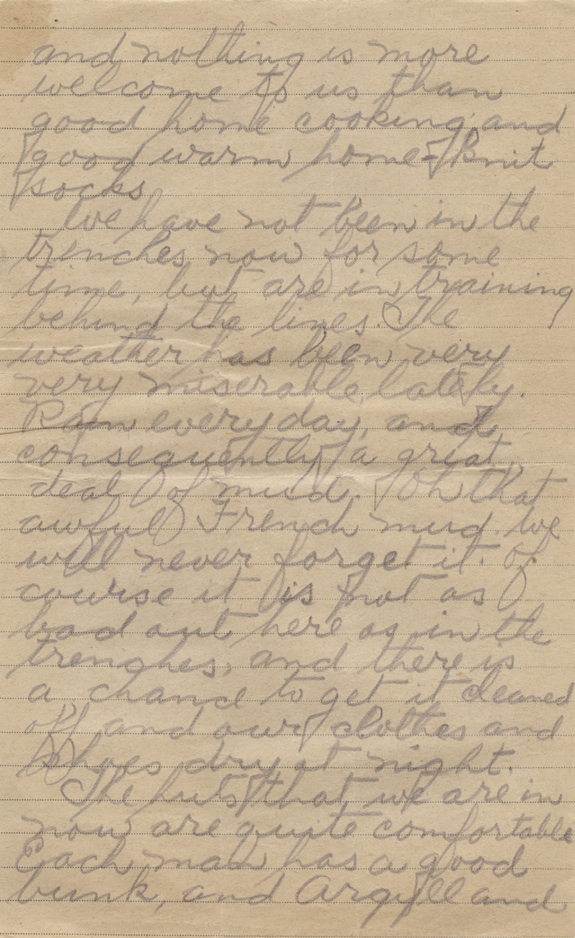 and nothing is more
welcome to us than
good home cooking and
good warm home-knit
socks
We have not been in the
trenches now for some
time, but are in training
behind the lines. The
weather has been very
very miserable lately.
Rain everyday, and
consequently a great
deal of mud. Oh that
awful French mud. We
will never forget it. Of
course it is not as
bad out here as in the
trenches, and there is
a chance to get it cleaned
off and our clothes and
shoes dry at night.
The huts that we are in
now are quite comfortable
Each man has a good
bunk, and Argyll and